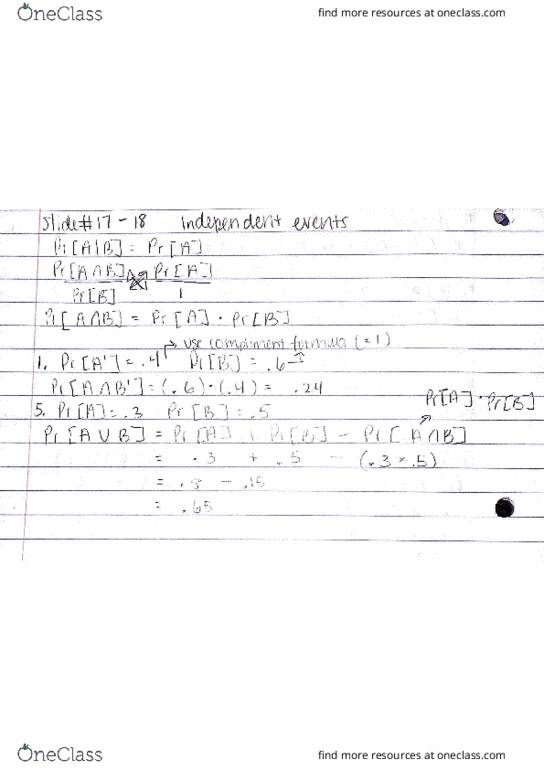 OneClass
find more resources at oneclass.com
Slide#17-18 Independent events
Pr[A|B] = Pr[A]
Pr[A∩B] = Pr[A]
Pr[B] 1
Pr[A∩B] = Pr[A] · Pr[B]
→ use compliment formula (=1)
1. Pr[A'] = .4 Pr[B] = .6
Pr[A∩B'] = (.6)·(.4) = .24
Pr[A]·Pr[B]
5. Pr[A] = .3 Pr[B] = .5
Pr[A∪B] = Pr[A] + Pr[B] − Pr[A∩B]
= .3 + .5 − (.3 × .5)
= .8 − .15
= .65
OneClass
find more resources at oneclass.com